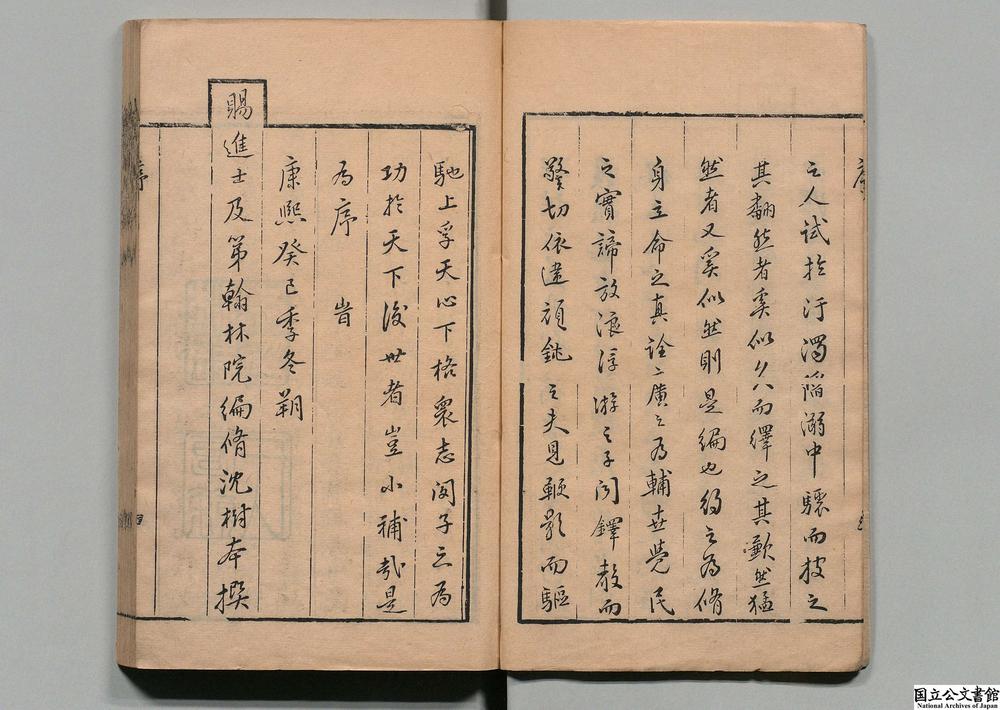 之人試於汙濁陷溺中驟而披之
其翻然者奚似久而繹之其歉然猛
然者又奚似然則是編也約之為脩
身立命之真詮廣之為輔世覺民
之實諦放浪浮游之子聞鐸教而
警切依違頑鈍之夫見鞭影而驅
馳上孚天心下格眾志閔子之為
功於天下後世者豈小補哉是
為序 旹
康熙癸巳季冬朔
賜進士及第翰林院編脩沈樹本撰
序
四
国立公文書館
National Archives of Japan